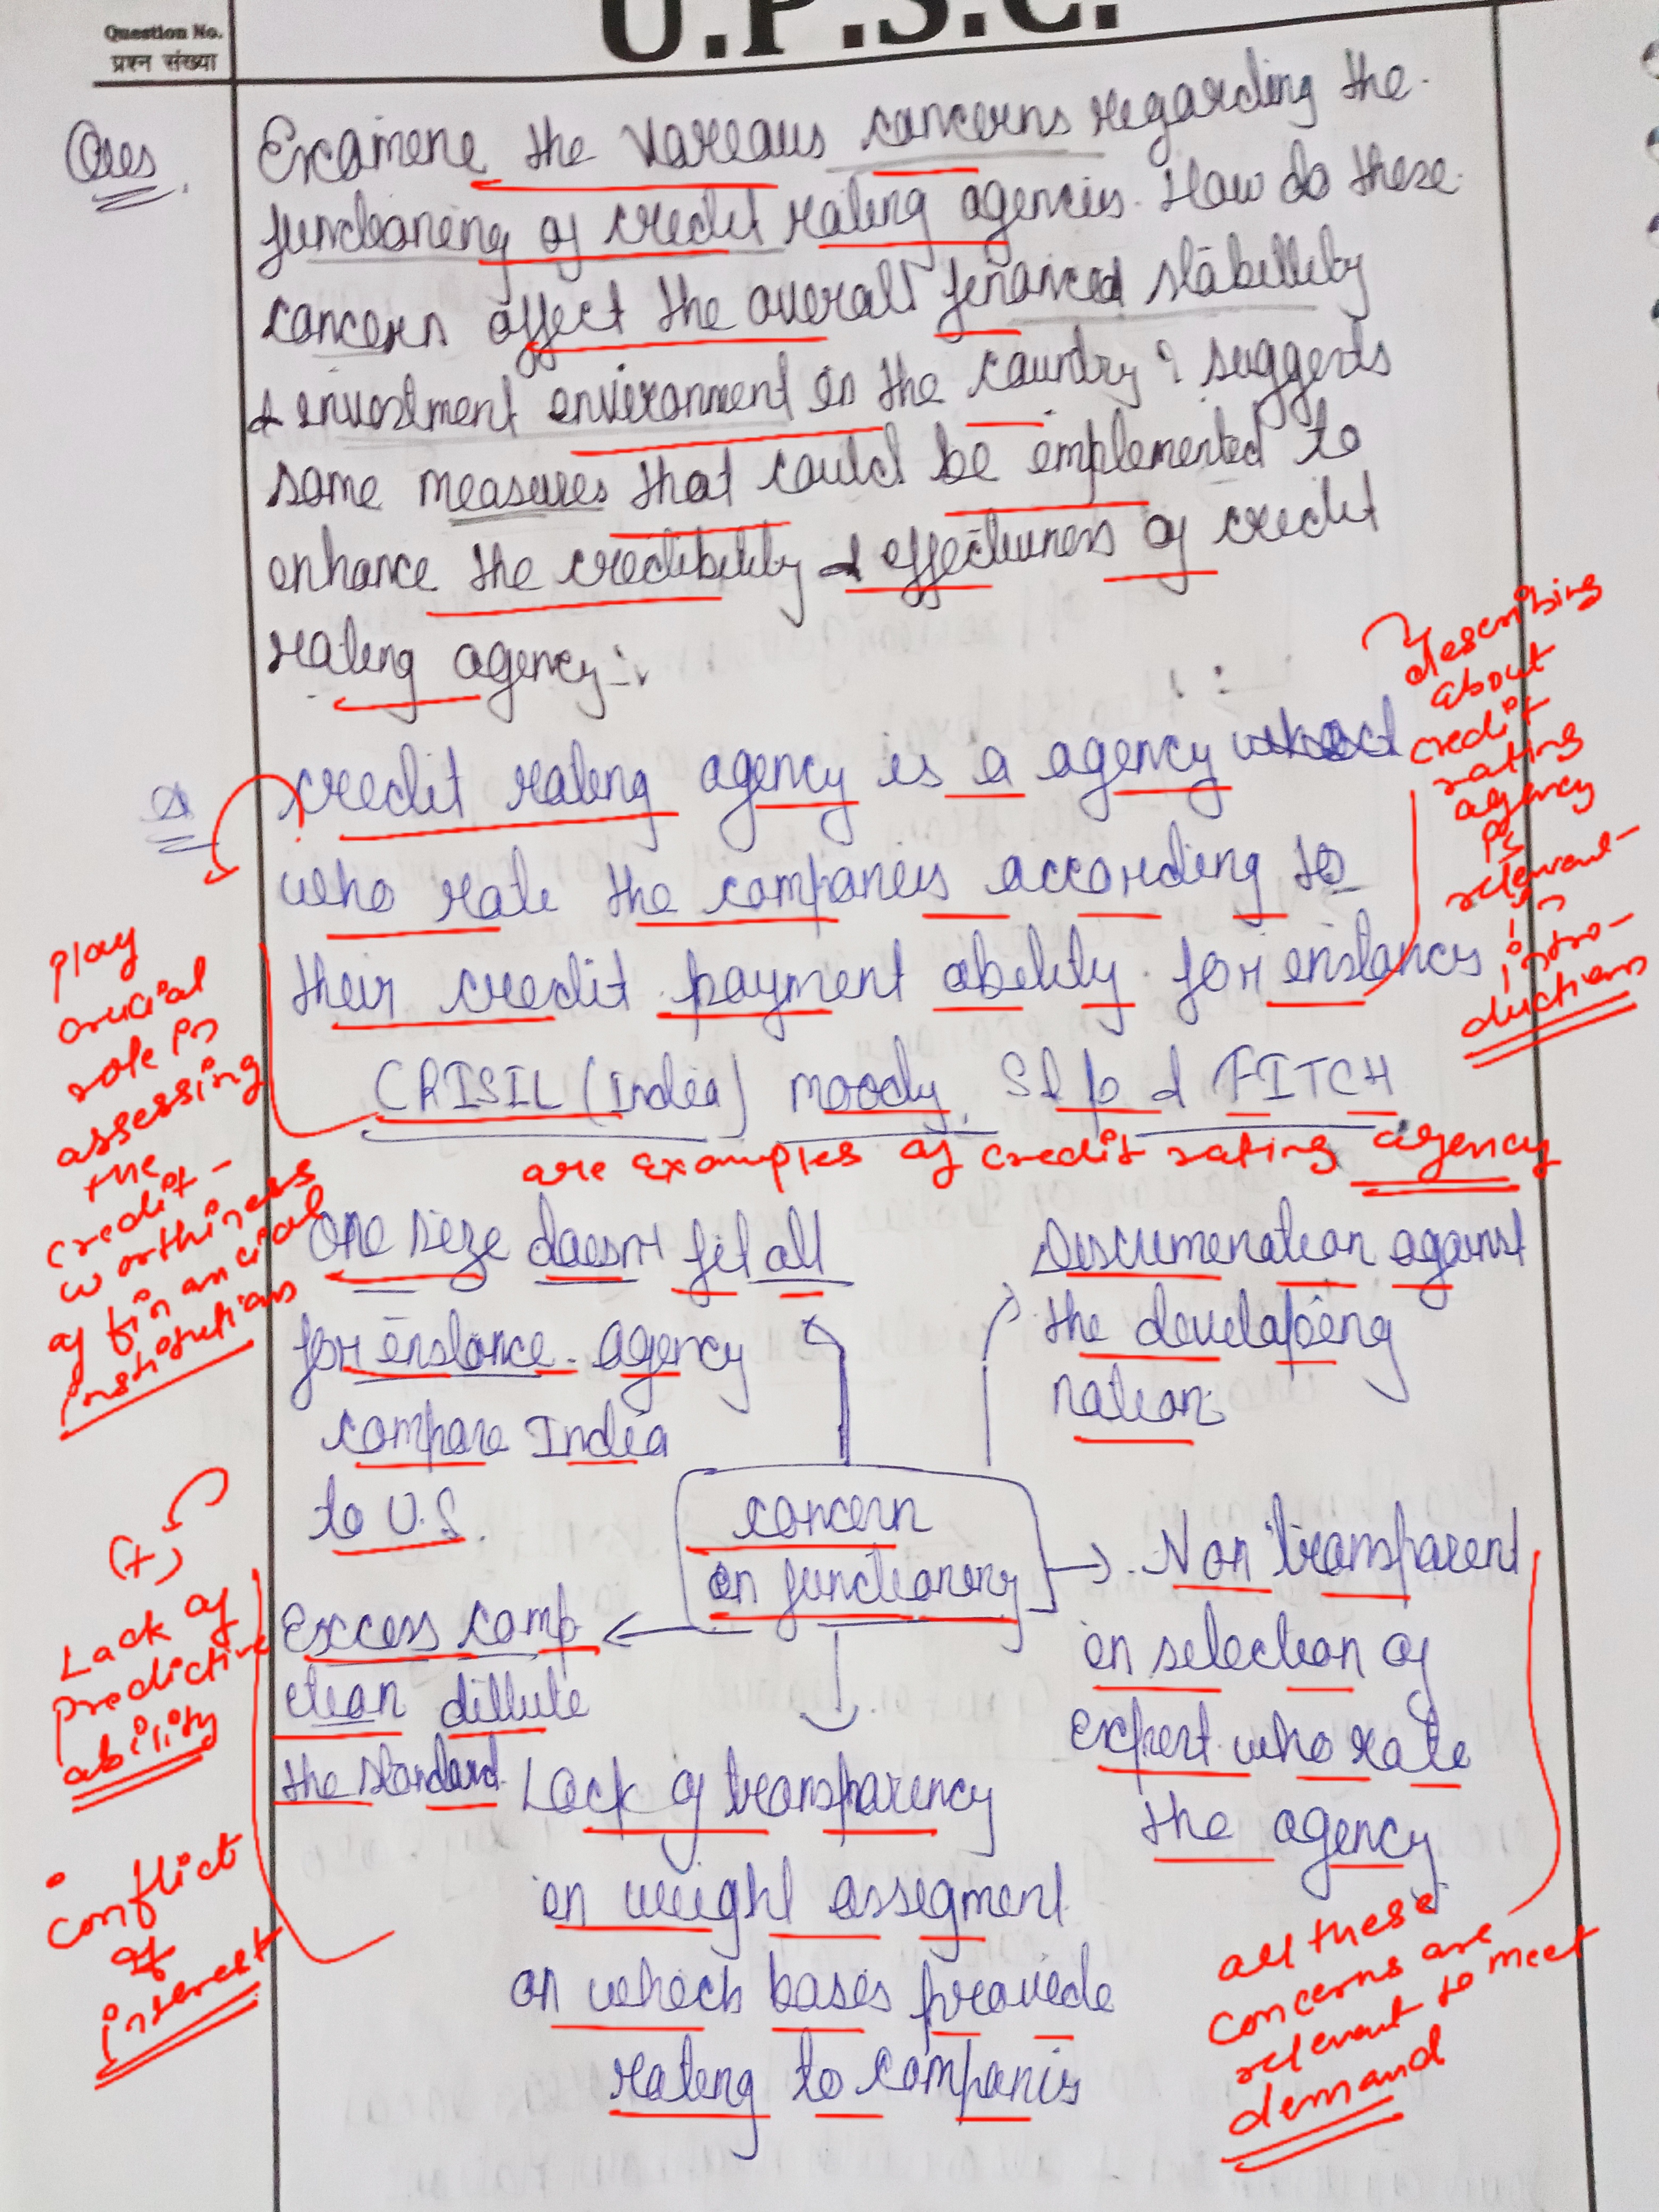 U.P.S.C.
Question No.
प्रश्न संख्या
Ques.
Examine the various concerns regarding the
functioning of credit rating agencies. How do these
concern affect the overall financial stability
& investment environment in the country? suggests
some measures that could be implemented to
enhance the credibility & effectiveness of credit
rating agency:-
describing
about
credit
rating
agency
is
relevant
in
intro-
ductions
credit rating agency is a agency
who rate the companies according to
their credit payment ability. for instancy
CRISIL (India) moody, S&p & FITCH
are examples of credit rating agency
play
crucial
role in
assessing
the
credit-
worthiness
of financial
institutions
One size doesn't fit all
for instance. agency
compare India
to U.S.
Discrimenation against
the developing
nation.
concern
on functioning
Non transparent
in selection of
expert who rate
the agency
Excess comp
etion dillute
the standard.
Lack of transparency
in weight assigment
on which bases provide
rating to companies
(+)
Lack of
predictive
ability
• conflict
of
interest
all these
concerns are
relevant to meet
demand